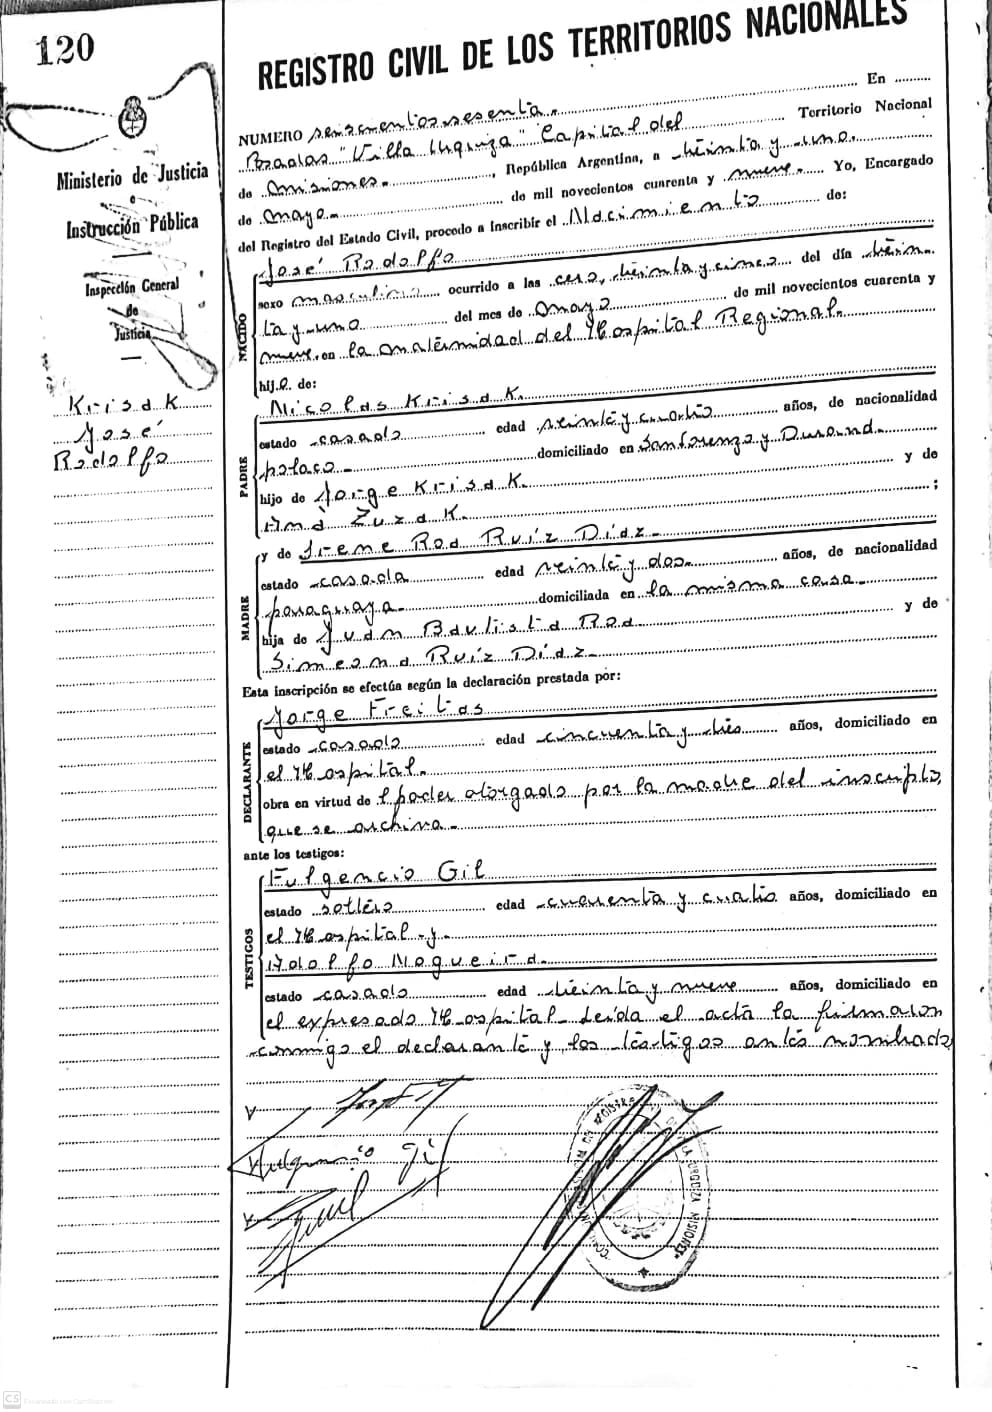 120
REGISTRO CIVIL DE LOS TERRITORIOS NACIONALES
Ministerio de Justicia
e
Instrucción Pública
Inspección General
de
Justicia
Krisak
José
Rodolfo
NUMERO seiscientos sesenta. En
Posadas "Villa Urquiza" Capital del Territorio Nacional
de Misiones. , República Argentina, a treinta y uno.
de Mayo de mil novecientos cuarenta y nueve. Yo, Encargado
del Registro del Estado Civil, procedo a inscribir el Nacimiento de:
NACIDO
José Rodolfo
sexo masculino ocurrido a las cero, treinta y cinco del día trein-
ta y uno del mes de Mayo de mil novecientos cuarenta y
nueve, en la Maternidad del Hospital Regional.
hijo de:
PADRE
Nicolas Krisak.
estado casado edad veinte y cuatro años, de nacionalidad
polaco domiciliado en San Lorenzo y Durand.
hijo de Jorge Krisak. y de
Ana Zuzak. ;
y de Irene Roa Ruíz Díaz.
MADRE
estado casada edad veinte y dos. años, de nacionalidad
paraguaya domiciliada en la misma casa.
hija de Juan Bautista Roa y de
Simeona Ruíz Díaz.
Esta inscripción se efectúa según la declaración prestada por:
DECLARANTE
Jorge Freitas
estado casado edad cincuenta y tres años, domiciliado en
el Hospital.
obra en virtud de l poder otorgado por la madre del inscripto,
que se archiva.
ante los testigos:
TESTIGOS
Fulgencio Gil
estado soltero edad cuarenta y cuatro años, domiciliado en
el Hospital y
Adolfo Nogueira.
estado casado edad treinta y nueve años, domiciliado en
el expresado Hospital. Leída el acta la firmaron
conmigo el declarante y los testigos antes nombrados
Fulgencio Gil
URQUIZA MISIONES
CS